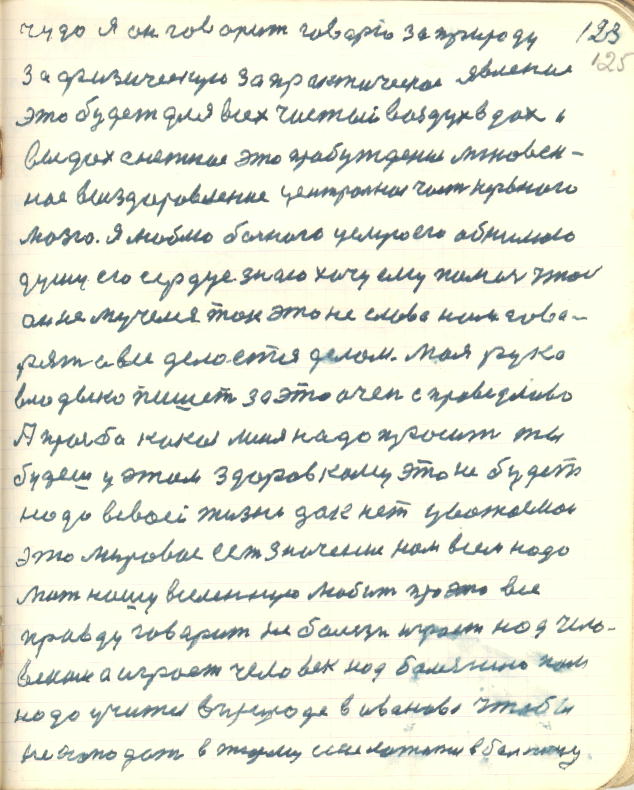 чудо я он говорит говарю за природу 123
за физическую за практическое явление 125
это будет для всех чистый воздух вдох и
выдох снежное это пробуждение мгновен-
ное выиздоровление централная част нервного
мозга. Я люблю болного целую его обнимаю
душу его сердце знаю хочу ему помоч чтоб
он не мучелся так это не слова нам гова-
рят а все делостся делом. Моя рука
владыко пишет за это очен справедливо
А прозба какая меня надо просит ты
будеш у этом здоров кому это не будет
надо в своей жизнь дак нет уважаемаи
это мировое сет значение нам всем надо
мат нашу вселенную любит про это все
правду говарит не болезн играет над чело-
веком а играет человек над болезнию нам
надо учится в природе в иванова чтобы
не попадат в тюрму и не ложится в болницу.